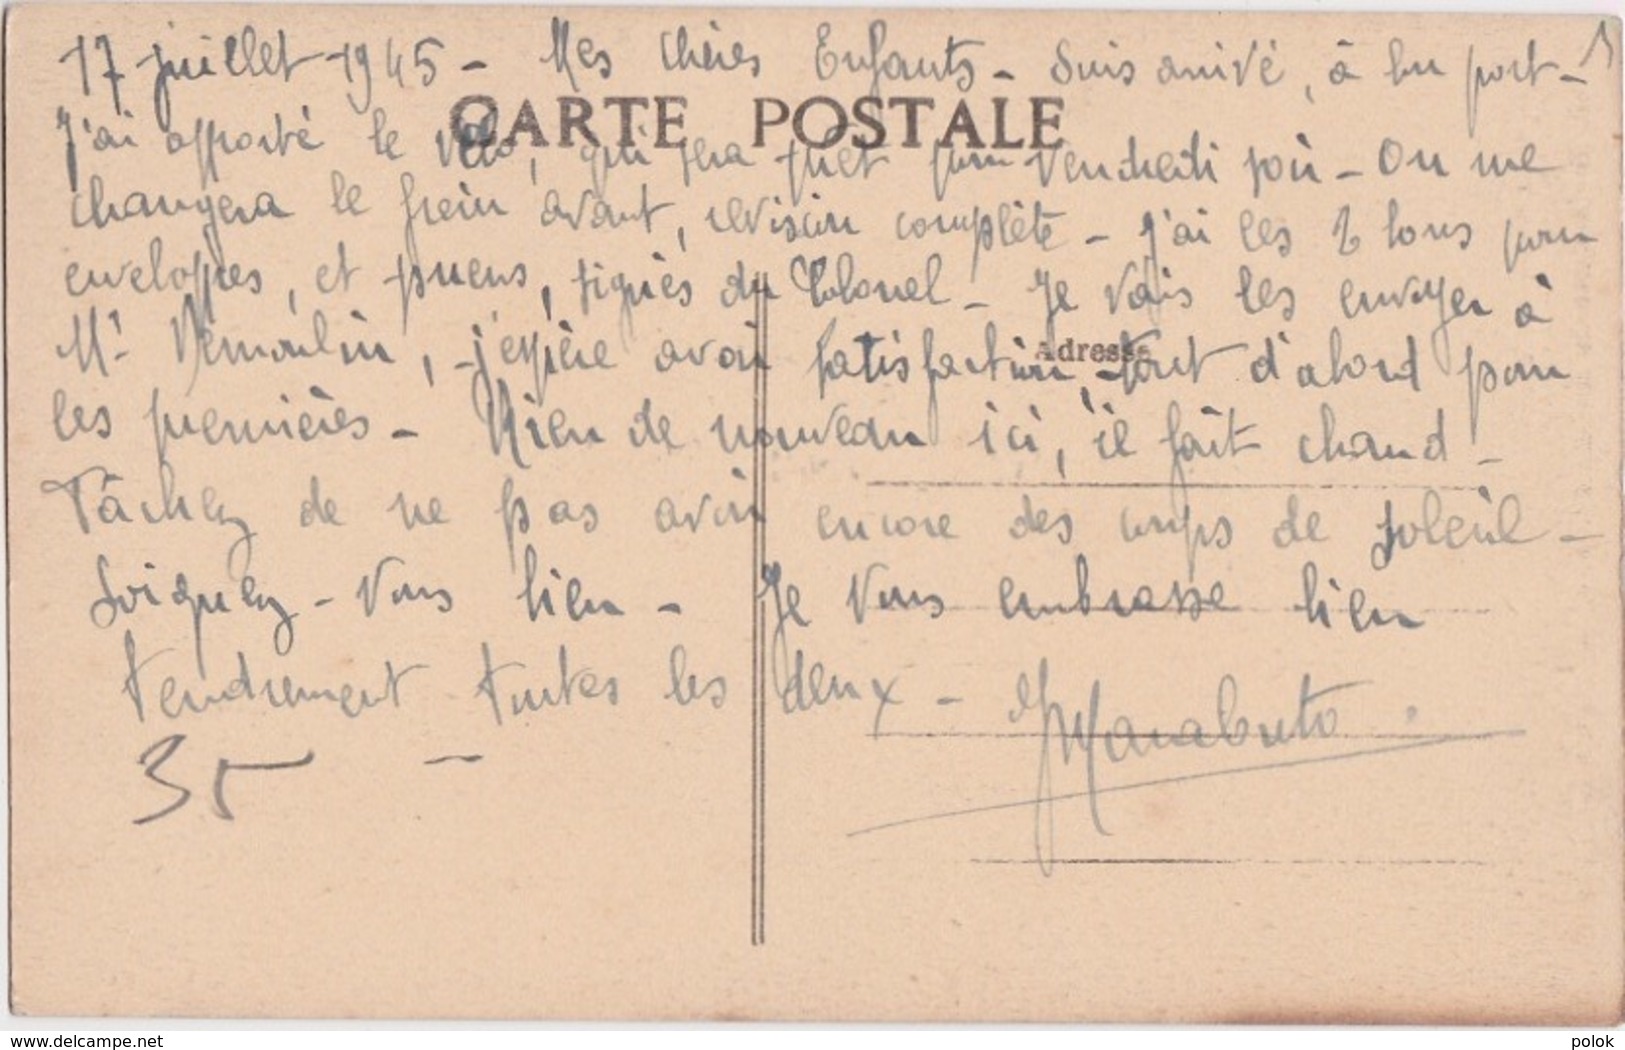 17 juillet 1945 - Mes chères Enfants - Suis arrivé, à bu port -
CARTE POSTALE
J'ai apporté le vélo, qui sera prêt pour Vendredi soir - On me
changera le frein avant, revision complète - J'ai les 2 bons pour
enveloppes, et pneus, signés du Colonel - Je vais les envoyer à
Mr Demoulin, j'espère avoir satisfaction, tout d'abord pour
Adresse
les premières - Rien de nouveau ici, il fait chaud -
Tâchez de ne pas avoir encore des coups de soleil -
Soignez - Vous bien - Je Vous embrasse bien
tendrement toutes les deux -
35 -
www.delcampe.net
polok